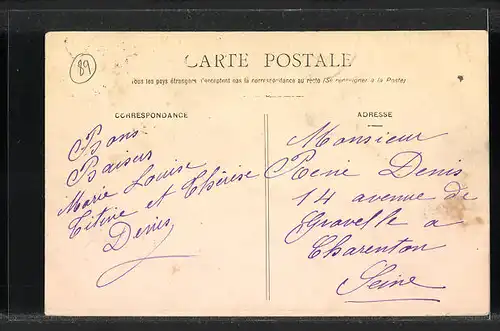 89
CARTE POSTALE
Tous les pays étrangers n'acceptent pas la correspondance au recto (Se renseigner à la Poste)
CORRESPONDANCE
Bons
Baisers
Marie Louise
Titine et Thérèse
Denis
ADRESSE
Monsieur
Rene Denis
14 avenue de
Gravelle a
Charenton
Seine